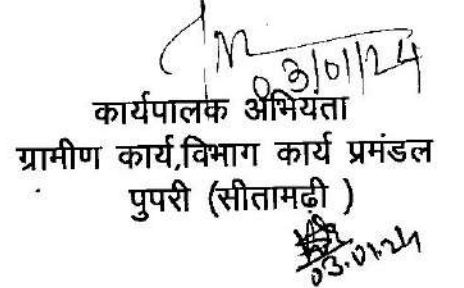 03/01/24
कार्यपालक अभियंता
ग्रामीण कार्य,विभाग कार्य प्रमंडल
पुपरी (सीतामढ़ी )
03.01.24